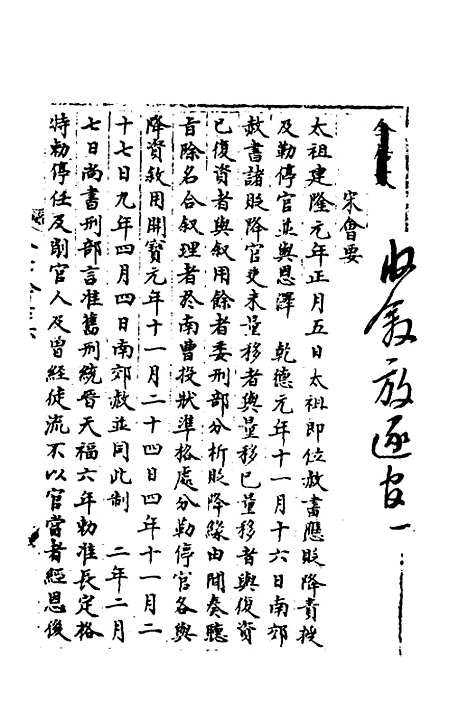 收敘放逐官一
宋會要
太祖建隆元年正月五日太祖即位赦書應貶降責授
及勒停官並與恩澤　乾德元年十一月十六日南郊
赦書諸貶降官吏未量移者與量移已量移者與復資
已復資者與敘用餘者委刑部分析貶降緣由聞奏聽
旨除名合敘理者於南曹投狀準格處分勒停官各與
降資敘用開寶元年十一月二十四日四年十一月二
十七日九年四月四日南郊赦並同此制　二年二月
七日尚書刑部言准舊刑統晉天福六年勅准長定格
特勅停任及削官人及曾經徒流不以官當者經恩後